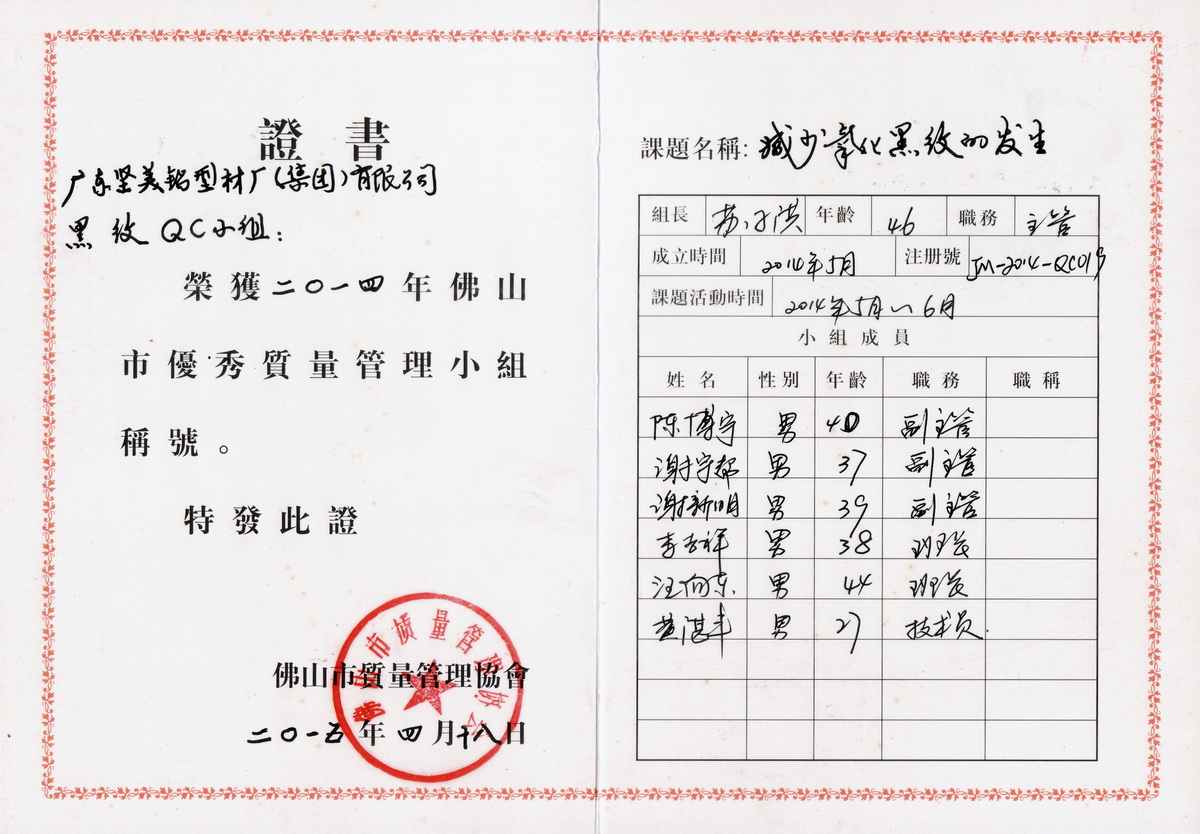 證書
广东坚美铝型材厂(集团)有限公司
黑纹QC小组:
榮獲二〇一四年佛山
市優秀質量管理小組
稱號。
特發此證
佛山市質量管理協會
二〇一五年四月十八日
佛山市质量管理协会
課題名稱: 减少氧化黑纹的发生
組長 苏子洪 年齡 46 職務 主管
成立時間 2014年5月 注册號 JM-2014-QC019
課題活動時間 2014年5月~6月
小組成員
姓名 性別 年齡 職務 職稱
陈博宇 男 40 副主管
谢宇都 男 37 副主管
谢新明 男 39 副主管
李 祥 男 38 班长
汪向东 男 44 班长
黄湛丰 男 27 技术员